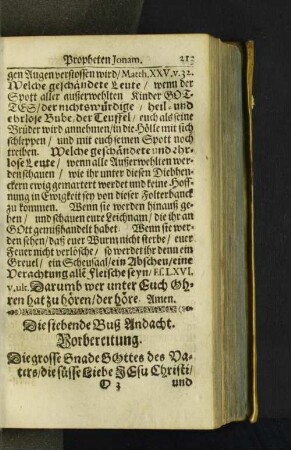 Propheten Jonam. 213
gen Augen verstossen wird / Matth. XXV. v. 32.
Welche geschändete Leute / wenn der
Spott aller außerwehlten Kinder GOT-
TES / der nichtswürdige / heil- und
ehrlose Bube, der Teuffel / euch als seine
Brüder wird annehmen / in die Hölle mit sich
schleppen / und mit euch seinen Spott noch
treiben. Welche geschändete und ehr-
lose Leute / wenn alle Außerwehlten wer-
den schauen / wie ihr unter diesen Diebhen-
ckern ewig gemartert werdet und keine Hoff-
nung in Ewigkeit sey von dieser Folterbanck
zu kommen. Wenn sie werden hinauß ge-
hen / und schauen eure Leichnam / die ihr an
GOtt gemißhandelt habet. Wenn sie wer-
den sehen / daß euer Wurm nicht sterbe / euer
Feuer nicht verlösche / so werdet ihr denn ein
Greuel / ein Scheusaal / ein Abscheu / eine
Verachtung alle Fleische seyn / Es. LXVI.
v. ult. Darumb wer unter Euch Oh-
ren hat zu hören / der höre. Amen.
Die siebende Buß Andacht.
Vorbereitung.
Die grosse Gnade GOttes des Va-
ters / die süsse Liebe JEsu Christi /
O 3 und